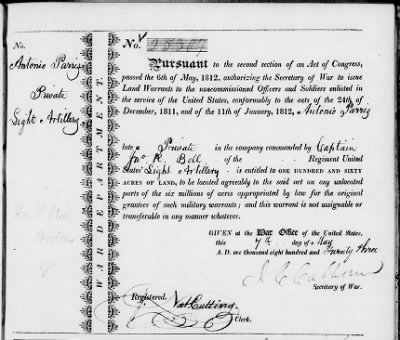 No.
Antonio Parris
Private
Light Artillery
Boston
WAR DEPARTMENT.
No.
Pursuant to the second section of an Act of Congress,
passed the 6th of May, 1812, authorizing the Secretary of War to issue
Land Warrants to the noncommissioned Officers and Soldiers enlisted in
the service of the United States, conformably to the acts of the 24th of
December, 1811, and of the 11th of January, 1812, Antonio Parris
late a Private in the company commanded by Captain
Jno R. Bell of the Regiment United
States' Light Artillery is entitled to ONE HUNDRED AND SIXTY
ACRES OF LAND, to be located agreeably to the said act on any unlocated
parts of the six millions of acres appropriated by law for the original
grantees of such military warrants; and this warrant is not assignable or
transferable in any manner whatever.
GIVEN at the War Office of the United States,
this 7th day of May
A. D. one thousand eight hundred and twenty three
J. C. Calhoun
Secretary of War.
Registered.
Nat Cutting
Clerk.